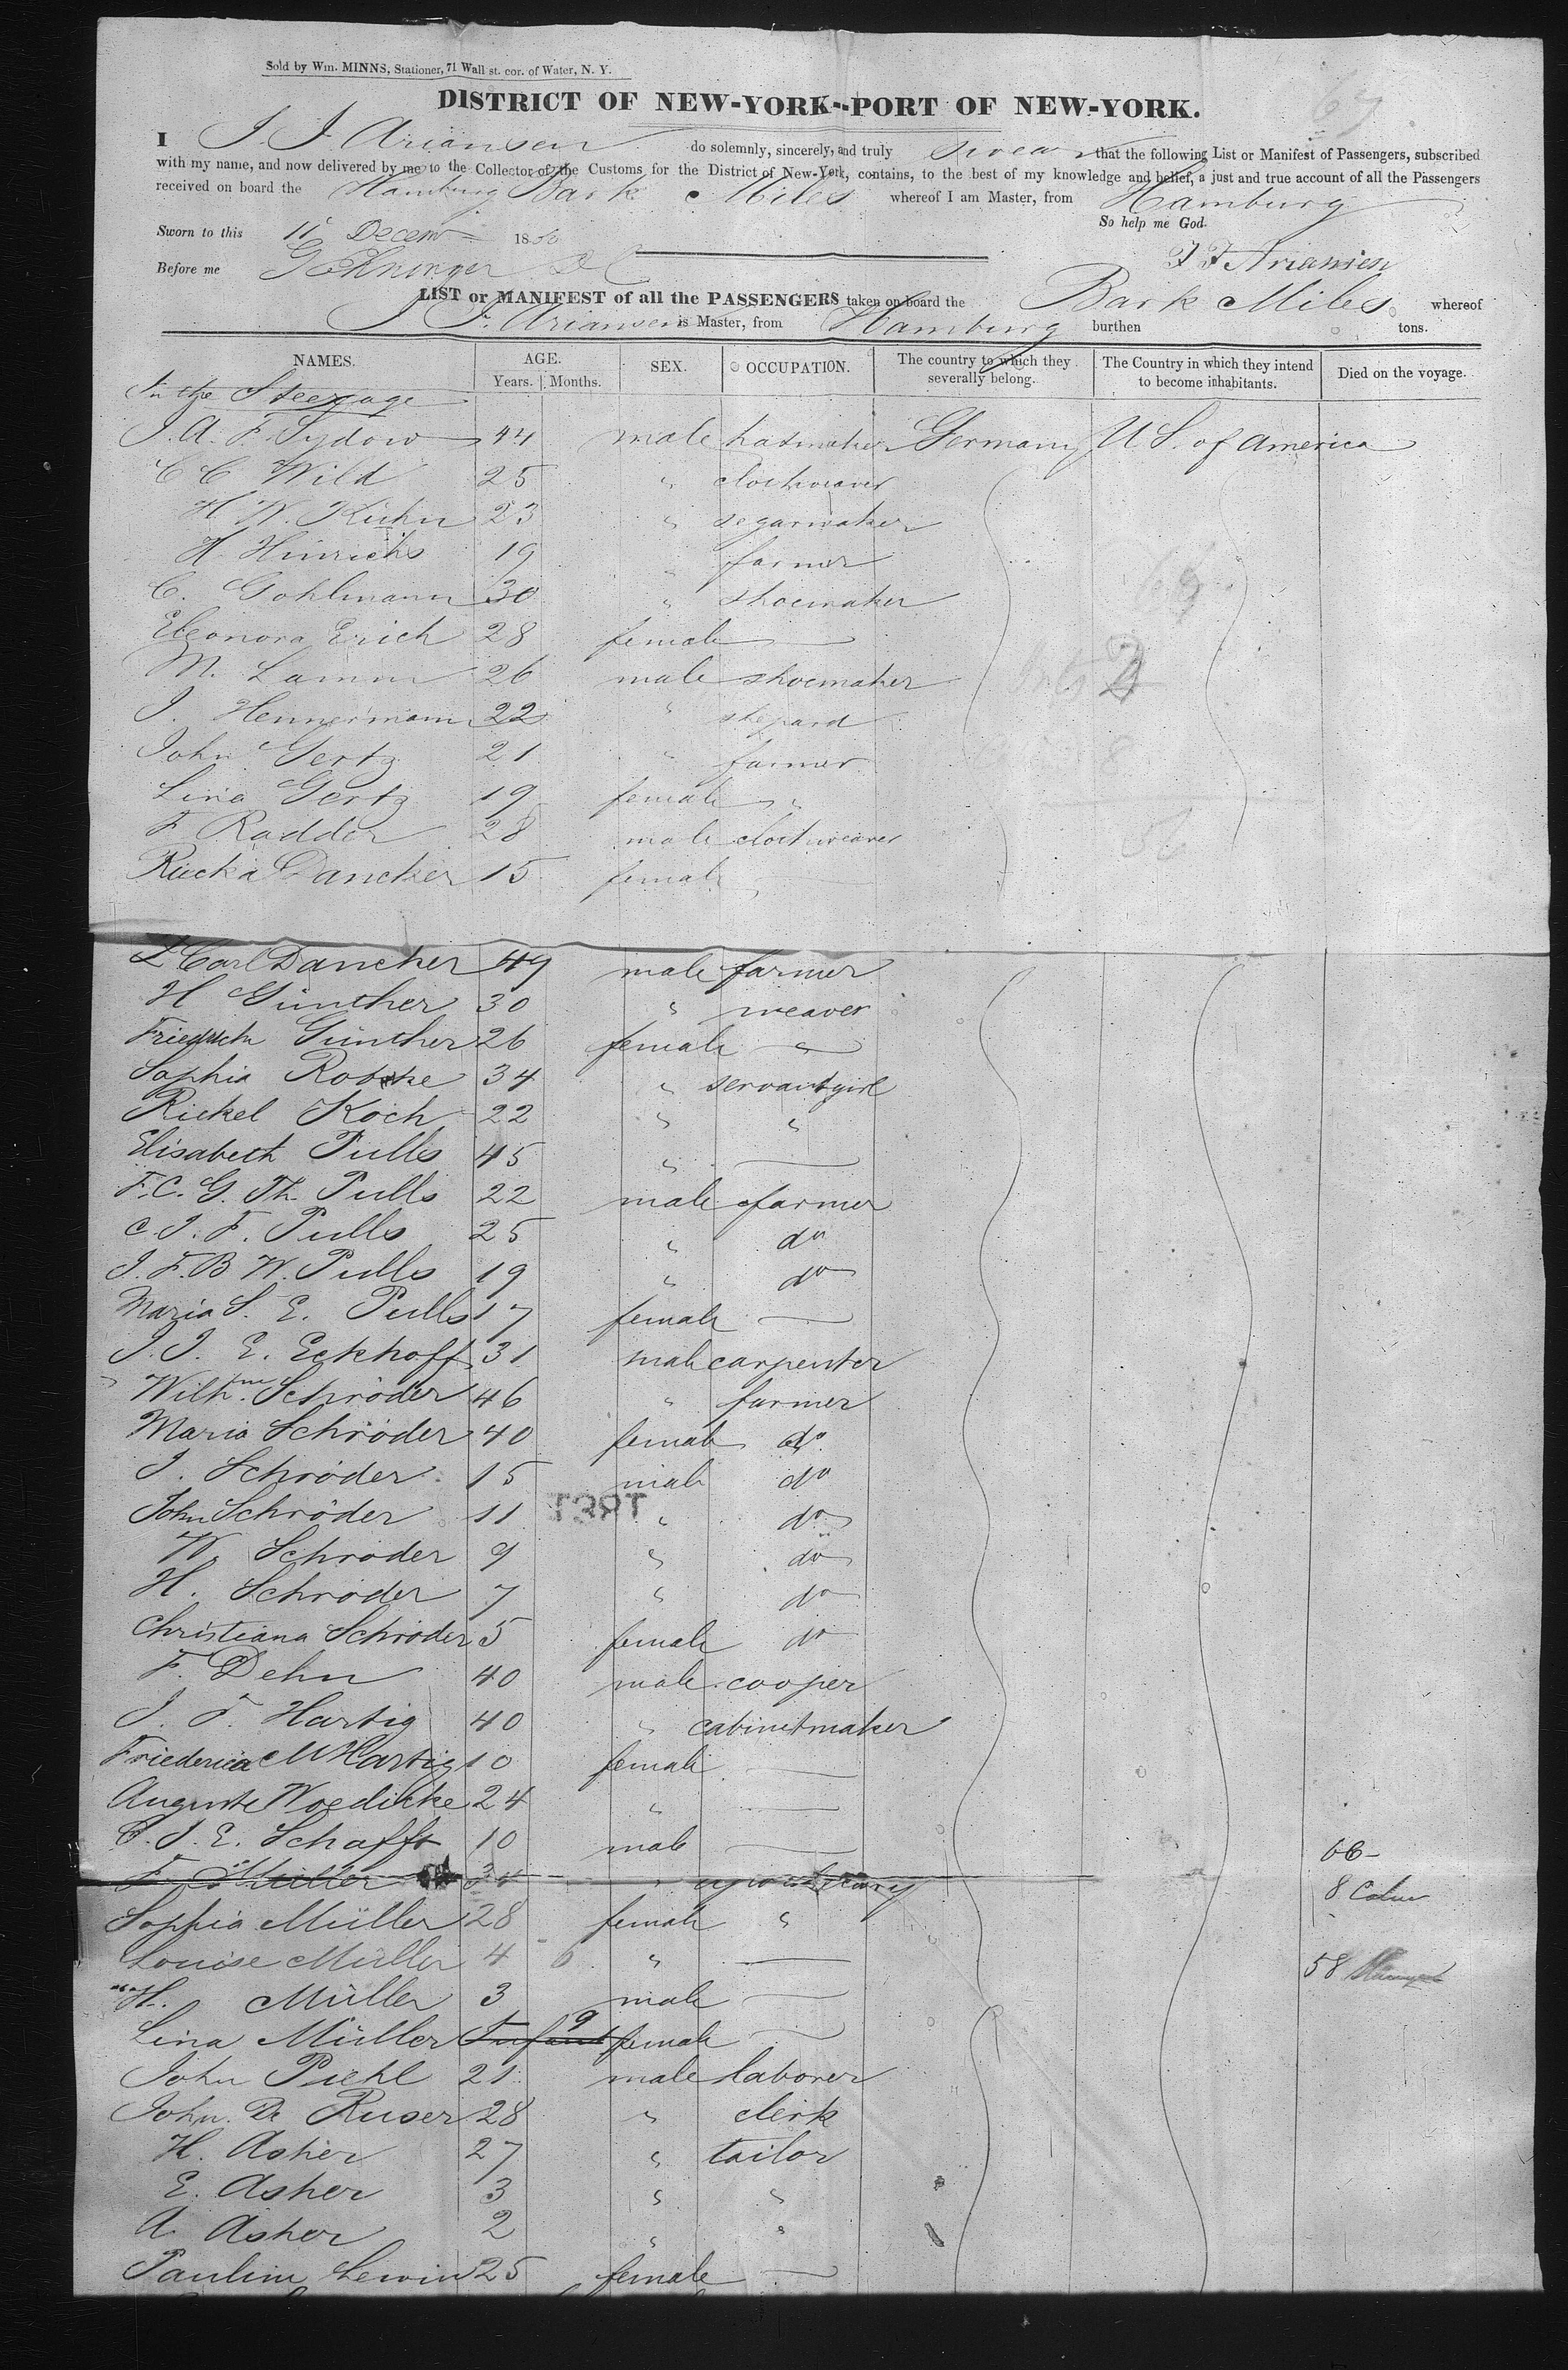 Sold by Wm. MINNS, Stationer, 71 Wall st. cor. of Water, N. Y.
DISTRICT OF NEW-YORK--PORT OF NEW-YORK.
I J. F. Ariansen do solemnly, sincerely, and truly swear that the following List or Manifest of Passengers, subscribed
with my name, and now delivered by me to the Collector of the Customs for the District of New-York, contains, to the best of my knowledge and belief, a just and true account of all the Passengers
received on board the Hamburg Bark Miles whereof I am Master, from Hamburg
So help me God.
Sworn to this 11 Decem 1850
J F Ariansen
Before me
LIST or MANIFEST of all the PASSENGERS taken on board the Bark Miles whereof
J. F. Ariansen is Master, from Hamburg burthen tons.
NAMES. AGE. Years. Months. SEX. OCCUPATION. The country to which they severally belong. The Country in which they intend to become inhabitants. Died on the voyage.
In the Steerage
J. A. F. Sydow 44 male hatmaker Germany U S. of America
C C Wild 25 " clothweaver
H W. Kuhn 23 " segarmaker
H. Hinrichs 19 farmer
C. Gohlmann 30 " shoemaker
Eleonora Erich 28 female
M. Lamm 26 male shoemaker
J. Hennermann 22 " shepard
John Gertz 21 " farmer
Lina Gertz 19 female "
F. Radder 28 male clothweaver
Riecka Dancker 15 female
L Carl Dancker 49 male farmer
H Günther 30 " weaver
Friedrich Günther 26 female
Sophia Robcke 34 " servantgirl
Rickel Koch 22 " "
Elisabeth Pulls 45 "
F. C. G. Th. Pulls 22 male farmer
C. J. F. Pulls 25 " do
J. F. B W. Pulls 19 " do
Maria S. E. Pulls 17 female
J. J. E. Eckhoff 31 male carpenter
Wilhm. Schröder 46 " farmer
Maria Schröder 40 female do
J. Schröder 15 male do
John Schröder 11 " do
W. Schröder 9 " do
H. Schröder 7 " do
Christiana Schröder 5 female do
F. Dehn 40 male cooper
J. F. Hartig 40 " cabinetmaker
Friederica M Hartig 10 female
Auguste Woedicke 24 "
C. J. E. Schafft 10 male
66
F. Müller 34 " apothecary
8
Sophia Müller 28 female "
Louise Müller 4 6 "
58
H. Müller 3 male
Lina Müller Infant 9 female
John Piehl 21 male laborer
John. De Ruser 28 " clerk
H. Asher 27 " tailor
E. Asher 3 " "
A. Asher 2 " "
Pauline Lewin 25 female